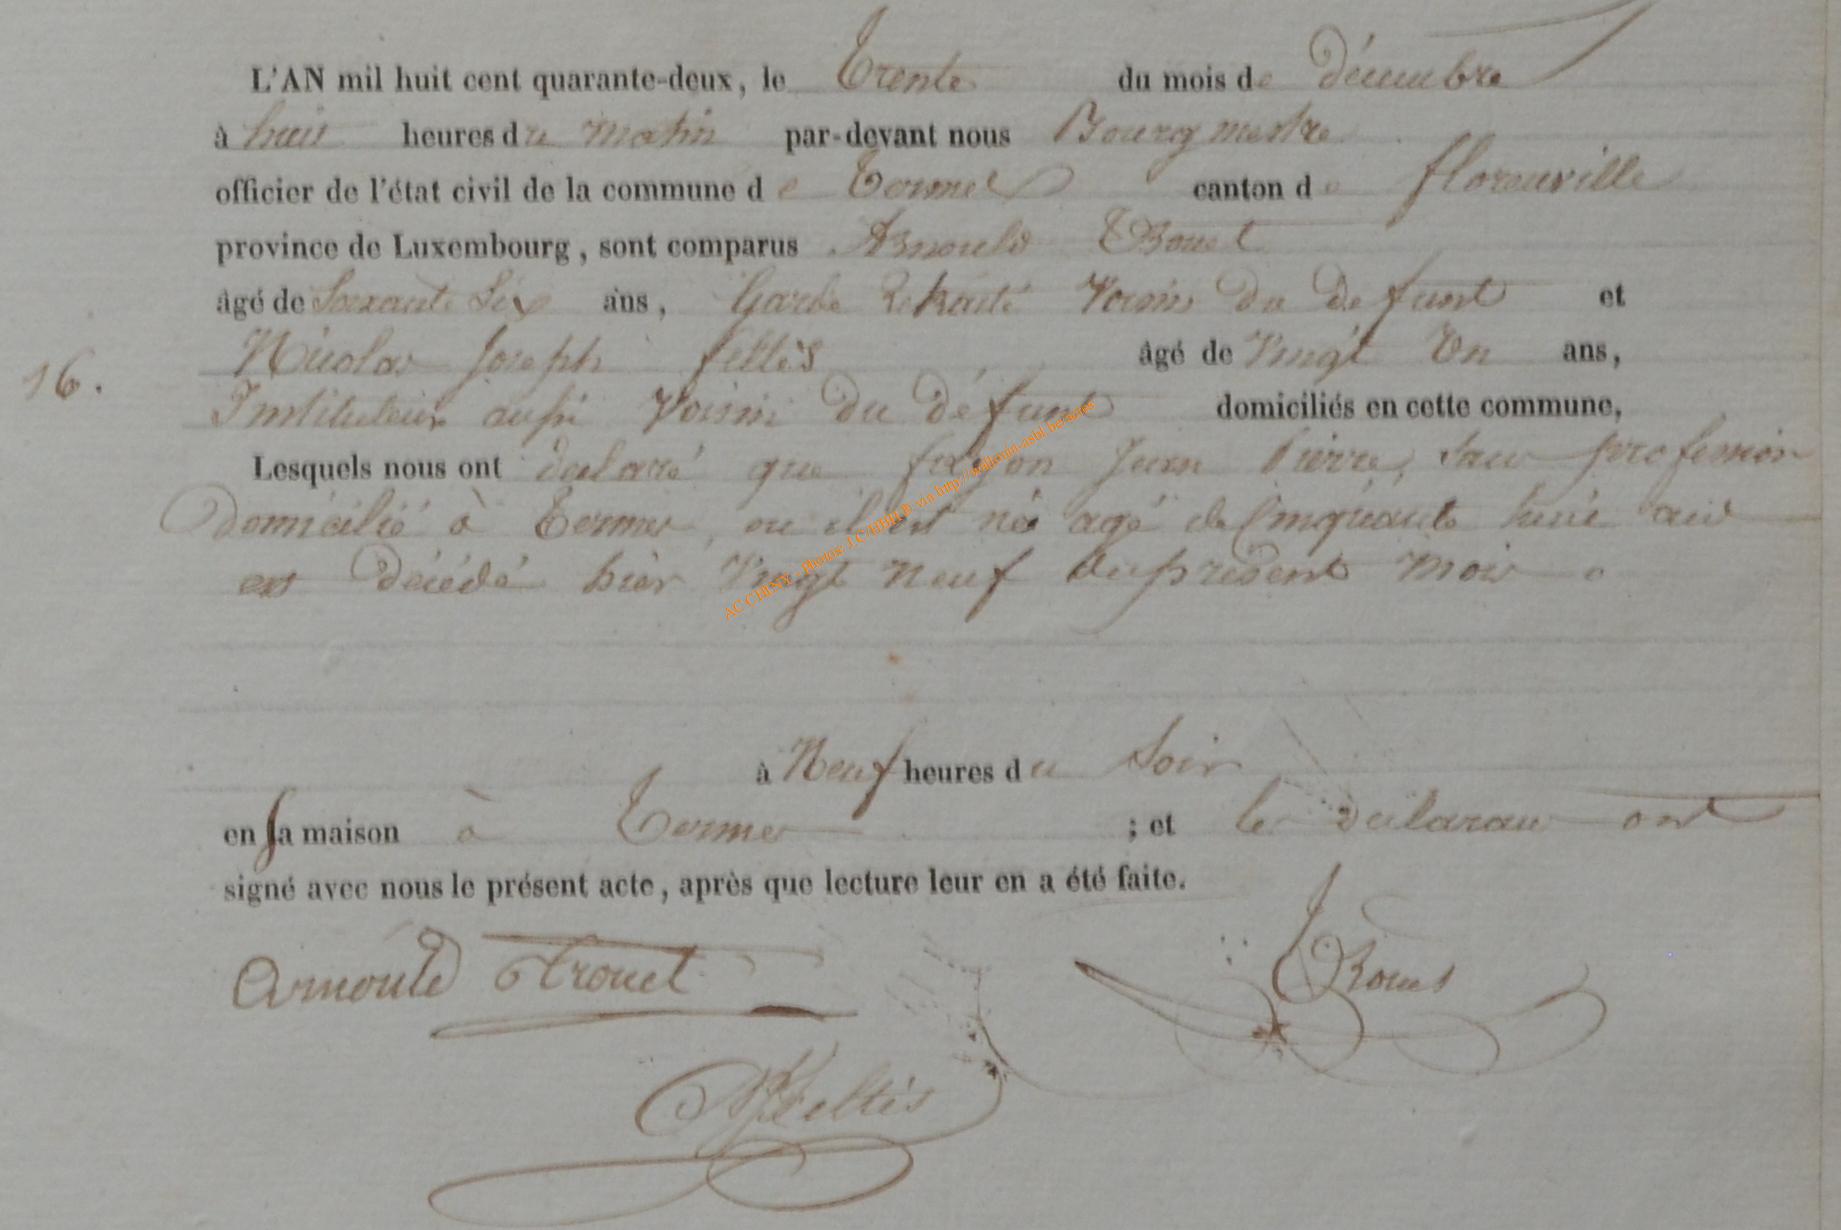 L'AN mil huit cent quarante-deux, le Trente du mois de décembre
à huit heures du matin par-devant nous Bourgmestre
officier de l'état civil de la commune de Termes canton de florenville
province de Luxembourg, sont comparus Arnould Trouet
âgé de Soixante Six ans, Garde Retraité Voisin du defunt et
16. Nicolas Joseph feltès âgé de Vingt Un ans,
Instituteur aussi Voisin du défunt domiciliés en cette commune,
Lesquels nous ont déclaré que Jean Pierre, Sans profession
Domicilié à Termes, ou il est né agé de Cinquante huit ans
est Décédé hièr Vingt Neuf du présent mois
à Neuf heures du Soir
en sa maison à Termes ; et les déclarans ont
signé avec nous le présent acte, après que lecture leur en a été faite.
Arnould Trouet
NJFeltès
AC CHINY - Photos J.C.